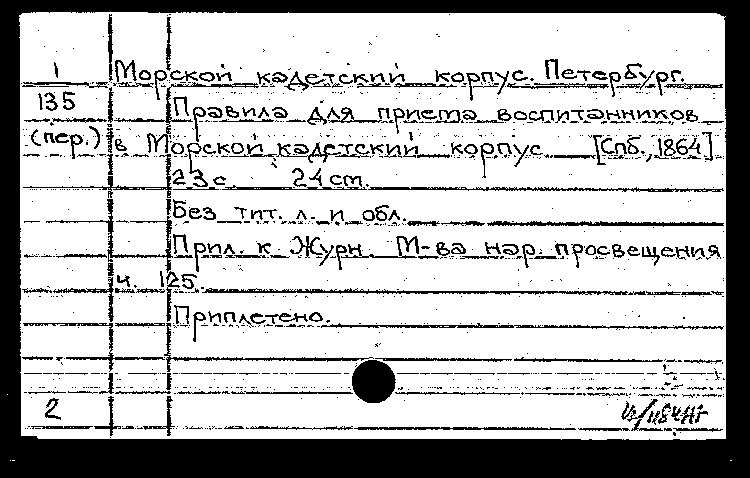 1 Морской кадетский корпус. Петербург.
135 Правила для приема воспитанников
(пер.) в Морской кадетский корпус [Спб., 1864]
23 с. 24 ст.
Без тит. л. и обл.
Прил. к Журн. М-ва нар. просвещения
ч. 125.
Приплетено.
2